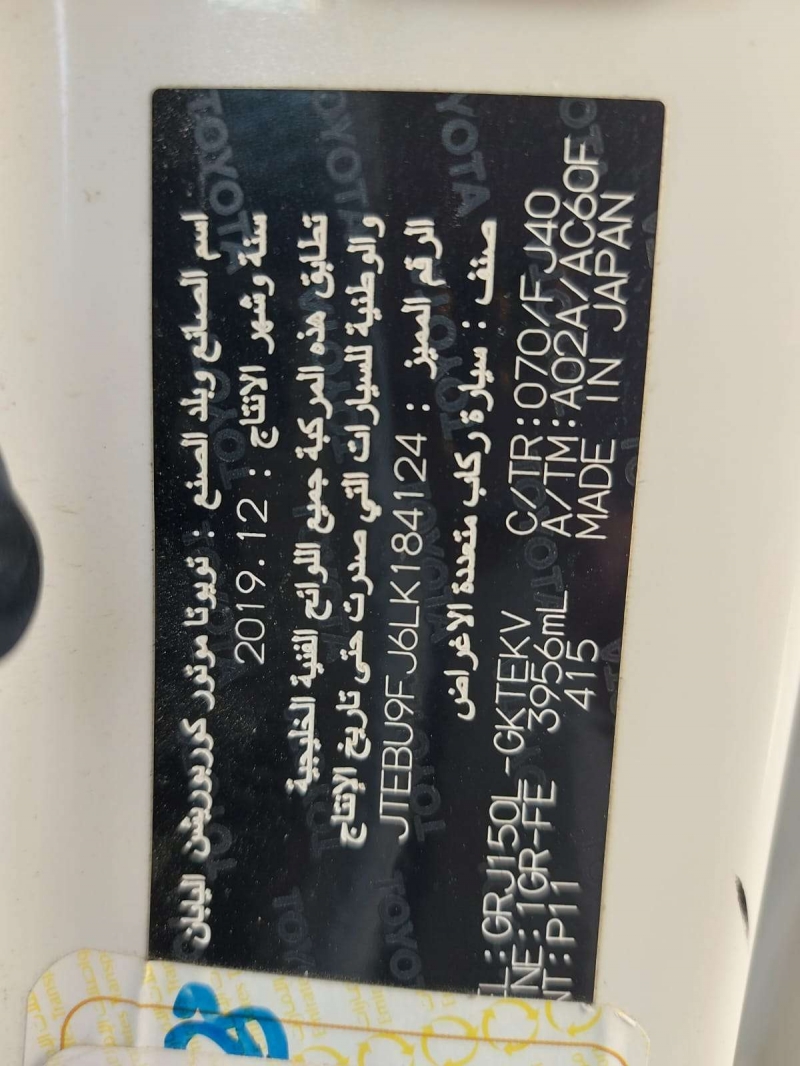 اسم الصانع وبلد الصنع : تويوتا موتور كوربوريشن اليابان
سنة وشهر الانتاج : 2019.12
تطابق هذه المركبة جميع اللوائح الفنية الخليجية
والوطنية للسيارات التي صدرت حتى تاريخ الإنتاج
الرقم المميز : JTEBU9FJ6LK184124
صنف : سيارة ركاب متعددة الاغراض
GRJ150L-GKTEKV C/TR:070/FJ40
1GR-FE 3956mL A/TM:A02A/AC60F
P11 415 MADE IN JAPAN